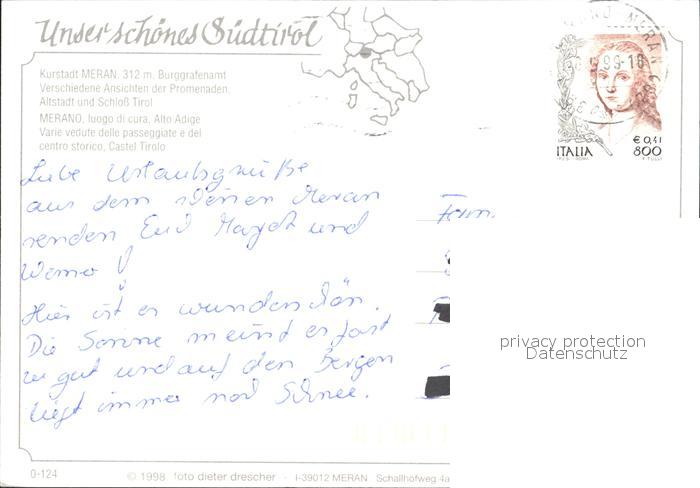 Unser schönes Südtirol
Kurstadt MERAN, 312 m, Burggrafenamt
Verschiedene Ansichten der Promenaden,
Altstadt und Schloß Tirol
MERANO, luogo di cura, Alto Adige
Varie vedute delle passeggiate e del
centro storico, Castel Tirolo
MERAN
€ 0,41
ITALIA 800
Liebe Urlaubsgrüße
aus dem schönen Meran
senden Euch und
Werner!
Hier ist es wunderschön.
Die Sonne meint es fast
zu gut und auf den Bergen
liegt immer noch Schnee.
Fam.
privacy protection
Datenschutz
0-124
© 1998 foto dieter drescher - I-39012 MERAN Schallhofweg 4a